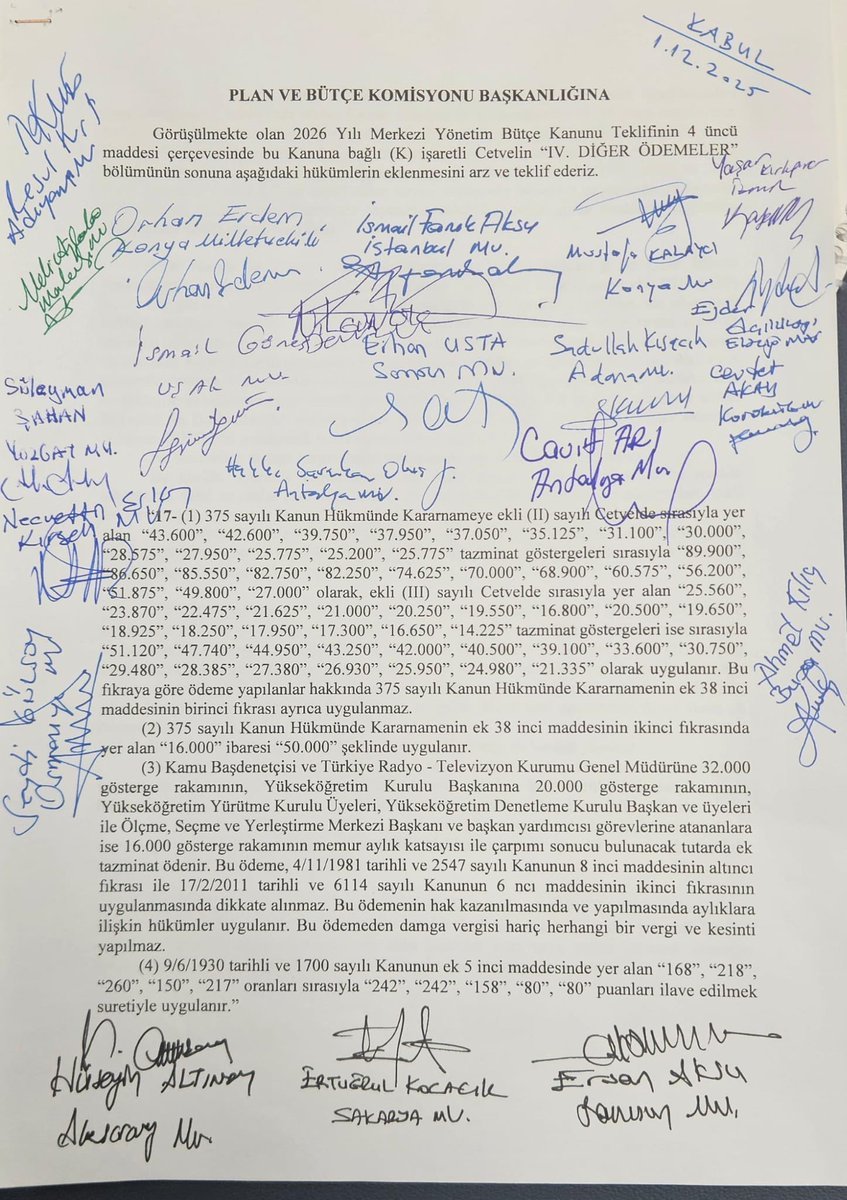 KABUL
1.12.2025
PLAN VE BÜTÇE KOMİSYONU BAŞKANLIĞINA
Görüşülmekte olan 2026 Yılı Merkezi Yönetim Bütçe Kanunu Teklifinin 4 üncü
maddesi çerçevesinde bu Kanuna bağlı (K) işaretli Cetvelin “IV. DİĞER ÖDEMELER”
bölümünün sonuna aşağıdaki hükümlerin eklenmesini arz ve teklif ederiz.
Adıyaman Mv
Orhan Erdem
Konya Milletvekili
Orhan Erdem
İsmail Faruk Aksu
İstanbul Mv.
Mustafa KALAYCI
Konya Mv
Yaşar Kırkpınar
İzmir
İsmail Güneş
UŞAK MV.
Erhan USTA
Samsun MV.
Sadullah Kısacık
Adana Mv.
Ejder
Açıkkapı
Elazığ Mv
Cevdet
AKAY
Karabük
Süleyman
ŞAHAN
YOZGAT MV.
Hakkı Saruhan Oluç
Antalya Mv.
Cavit ARI
Antalya Mv
Necmettin Erkan
Kırşehir MV
“17- (1) 375 sayılı Kanun Hükmünde Kararnameye ekli (II) sayılı Cetvelde sırasıyla yer
alan “43.600”, “42.600”, “39.750”, “37.950”, “37.050”, “35.125”, “31.100”, “30.000”,
“28.575”, “27.950”, “25.775”, “25.200”, “25.775” tazminat göstergeleri sırasıyla “89.900”,
“86.650”, “85.550”, “82.750”, “82.250”, “74.625”, “70.000”, “68.900”, “60.575”, “56.200”,
“51.875”, “49.800”, “27.000” olarak, ekli (III) sayılı Cetvelde sırasıyla yer alan “25.560”,
“23.870”, “22.475”, “21.625”, “21.000”, “20.250”, “19.550”, “16.800”, “20.500”, “19.650”,
“18.925”, “18.250”, “17.950”, “17.300”, “16.650”, “14.225” tazminat göstergeleri ise sırasıyla
“51.120”, “47.740”, “44.950”, “43.250”, “42.000”, “40.500”, “39.100”, “33.600”, “30.750”,
“29.480”, “28.385”, “27.380”, “26.930”, “25.950”, “24.980”, “21.335” olarak uygulanır. Bu
fıkraya göre ödeme yapılanlar hakkında 375 sayılı Kanun Hükmünde Kararnamenin ek 38 inci
maddesinin birinci fıkrası ayrıca uygulanmaz.
Ahmet Kılıç
Bursa Mv.
(2) 375 sayılı Kanun Hükmünde Kararnamenin ek 38 inci maddesinin ikinci fıkrasında
yer alan “16.000” ibaresi “50.000” şeklinde uygulanır.
(3) Kamu Başdenetçisi ve Türkiye Radyo - Televizyon Kurumu Genel Müdürüne 32.000
gösterge rakamının, Yükseköğretim Kurulu Başkanına 20.000 gösterge rakamının,
Yükseköğretim Yürütme Kurulu Üyeleri, Yükseköğretim Denetleme Kurulu Başkan ve üyeleri
ile Ölçme, Seçme ve Yerleştirme Merkezi Başkanı ve başkan yardımcısı görevlerine atananlara
ise 16.000 gösterge rakamının memur aylık katsayısı ile çarpımı sonucu bulunacak tutarda ek
tazminat ödenir. Bu ödeme, 4/11/1981 tarihli ve 2547 sayılı Kanunun 8 inci maddesinin altıncı
fıkrası ile 17/2/2011 tarihli ve 6114 sayılı Kanunun 6 ncı maddesinin ikinci fıkrasının
uygulanmasında dikkate alınmaz. Bu ödemenin hak kazanılmasında ve yapılmasında aylıklara
ilişkin hükümler uygulanır. Bu ödemeden damga vergisi hariç herhangi bir vergi ve kesinti
yapılmaz.
(4) 9/6/1930 tarihli ve 1700 sayılı Kanunun ek 5 inci maddesinde yer alan “168”, “218”,
“260”, “150”, “217” oranları sırasıyla “242”, “242”, “158”, “80”, “80” puanları ilave edilmek
suretiyle uygulanır.”
Hüseyin ALTINSOY
Aksaray Mv.
ERTUĞRUL KOCACIK
SAKARYA MV.
Ersan AKSU
Samsun Mv.